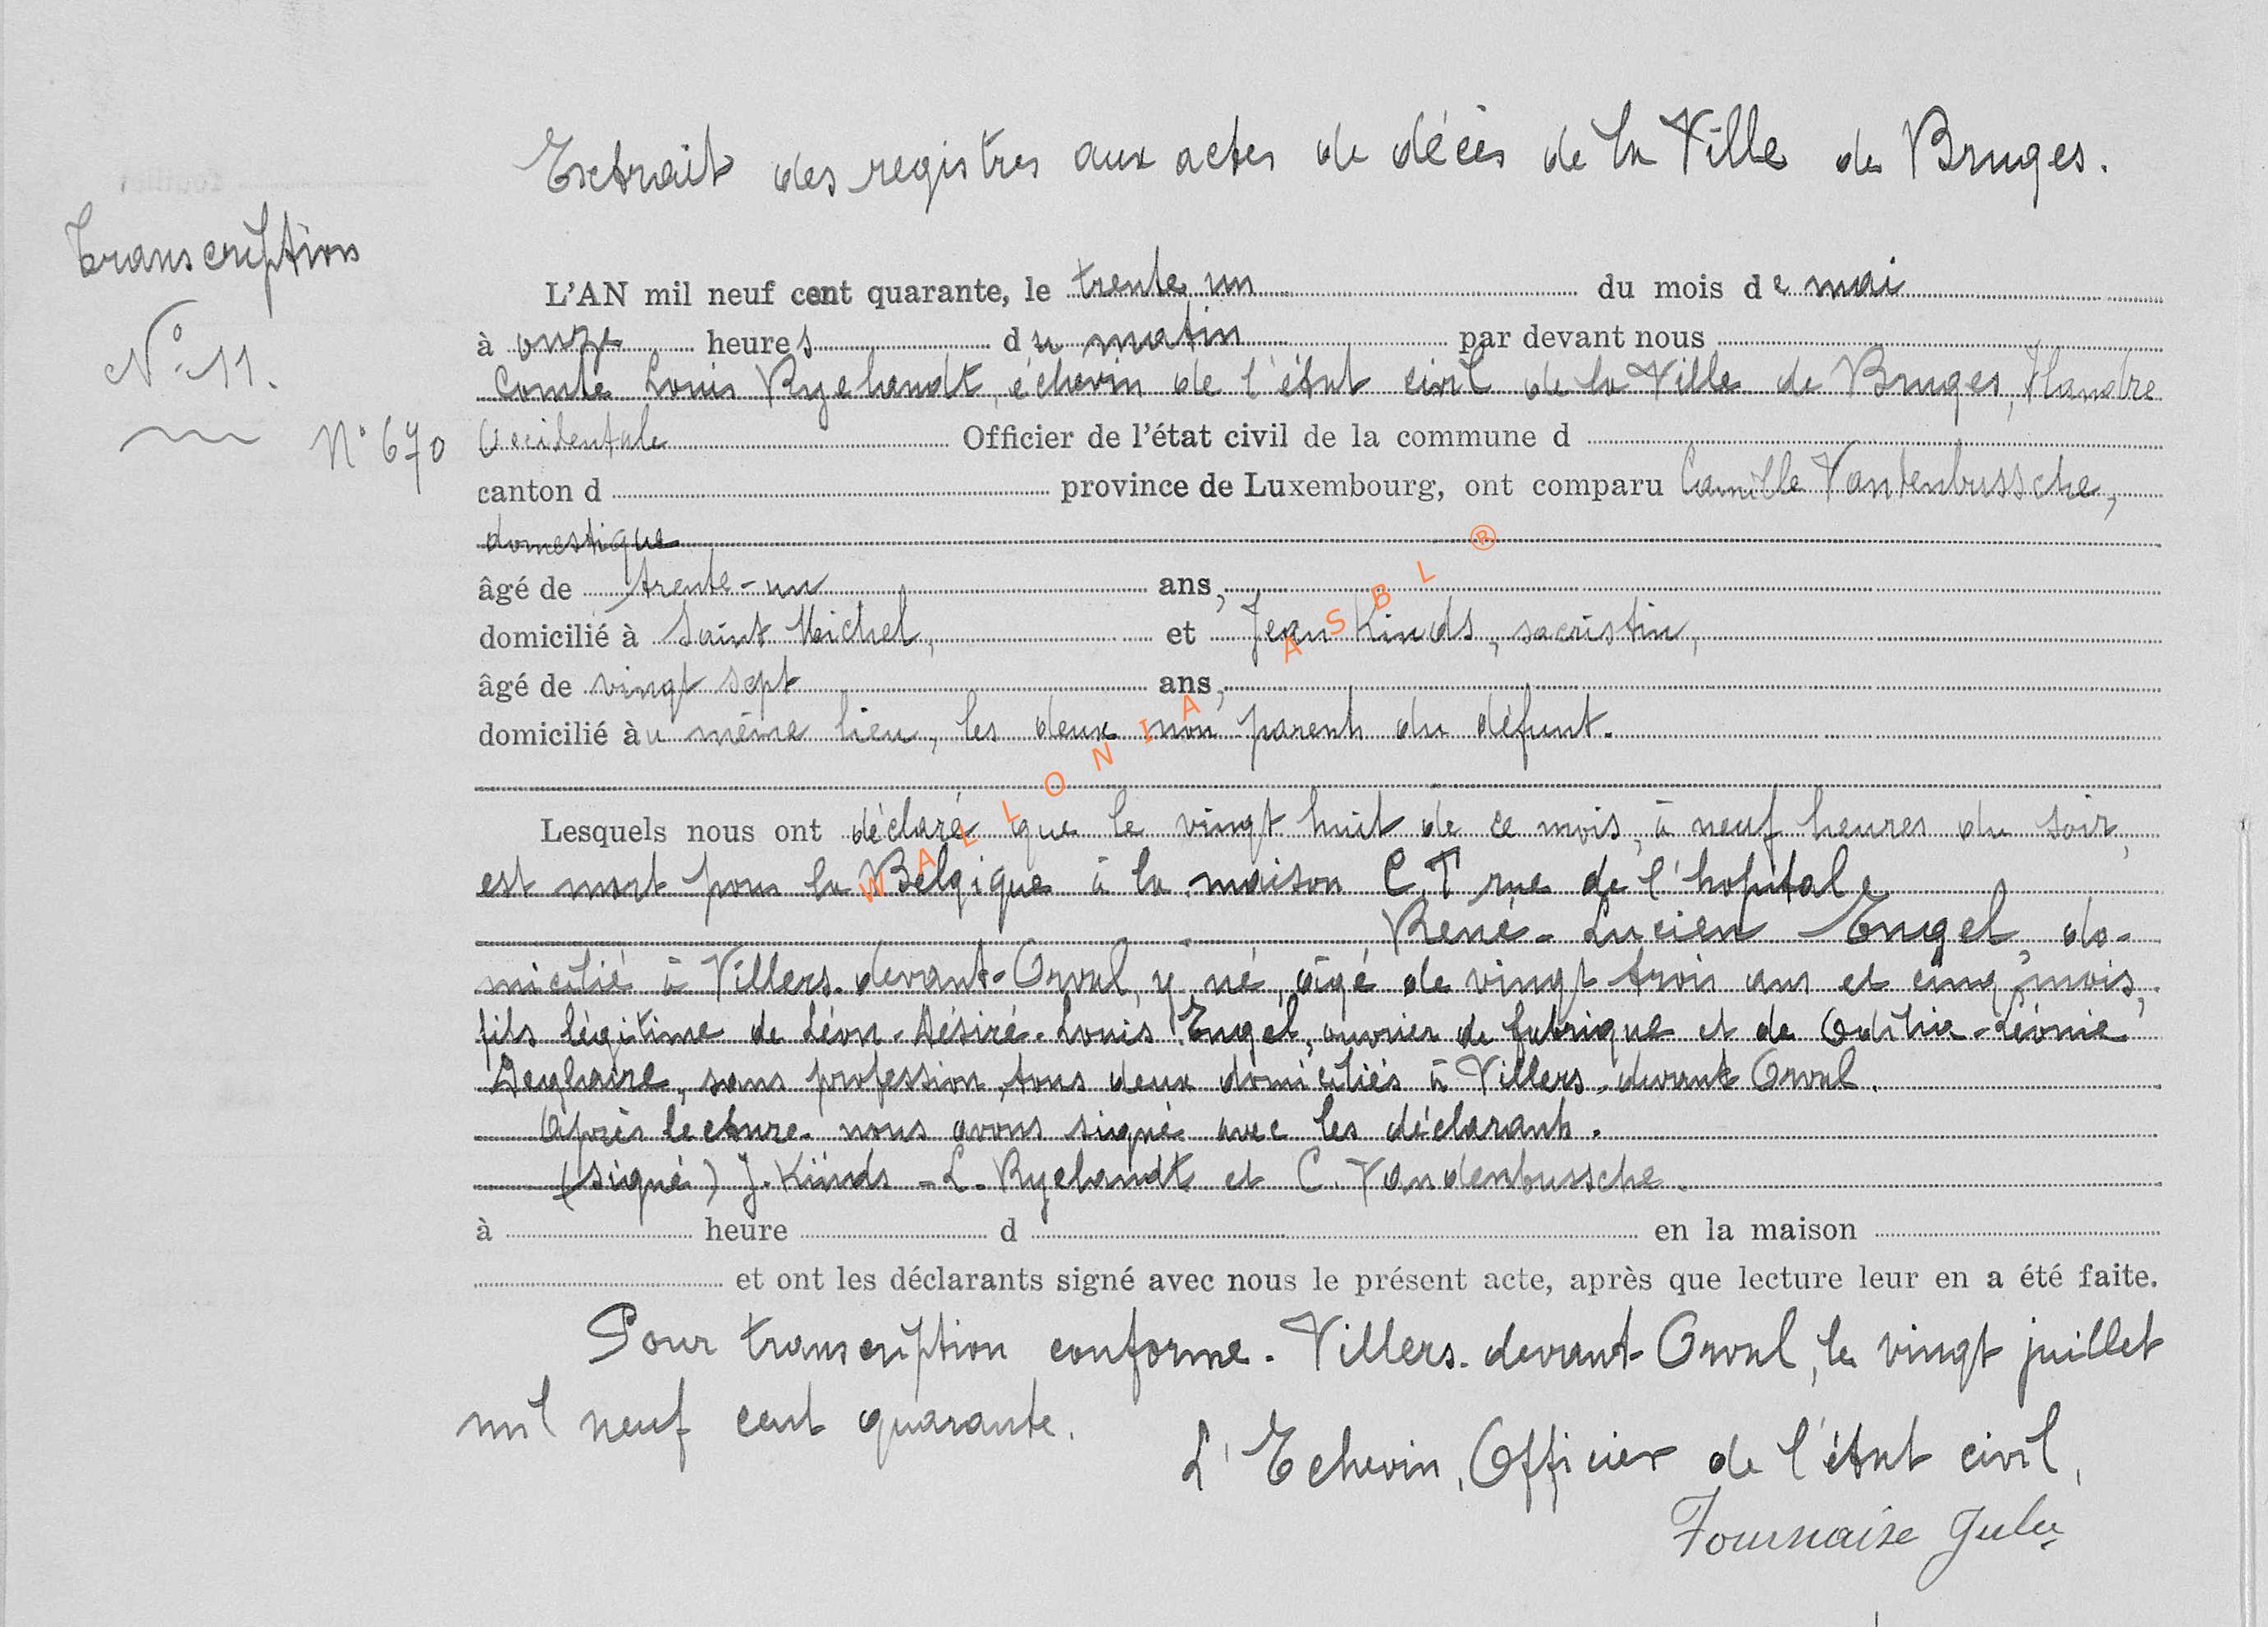 Extrait des registres aux actes de décès de la Ville de Bruges.
Transcription
L'AN mil neuf cent quarante, le trente un du mois de mai
N° 11.
à onze heures du matin par devant nous
Comte Louis Ryelandt, échevin de l'état civil de la Ville de Bruges, Flandre
N° 670 Occidentale Officier de l'état civil de la commune d
canton d province de Luxembourg, ont comparu Camille Vandenbussche,
domestique
âgé de trente-un ans,
domicilié à Saint Michel, et Jean Kinds, sacristin,
âgé de vingt sept ans,
domicilié au même lieu, les deux non parents du défunt.
Lesquels nous ont déclaré que le vingt huit de ce mois, à neuf heures du soir,
est mort pour la Belgique à la maison C.T rue de l'hopital,
René-Lucien Engel, do-
micilié à Villers-devant-Orval, y né, âgé de vingt trois ans et cinq mois,
fils légitime de Léon-Désiré-Louis Engel, ouvrier de fabrique et de Odilie-Léonie
, sans profession, tous deux domiciliés à Villers-devant Orval.
Après lecture nous avons signé avec les déclarants.
(signé) J. Kinds - L. Ryelandt et C. Vandenbussche.
à heure d en la maison
et ont les déclarants signé avec nous le présent acte, après que lecture leur en a été faite.
Pour transcription conforme. Villers-devant-Orval, le vingt juillet
mil neuf cent quarante.
L'Echevin, Officier de l'état civil,
Fournaise Jules
WALLONIA ASBL ®